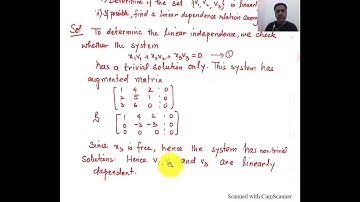 i) Determine if the set {v₁, v₂, v₃} is linearly
ii) If possible, find a linear dependence relation among
Sol To determine the linear independence, we check
whether the system
x₁v₁ + x₂v₂ + x₃v₃ = 0 → ①
has a trivial solution only. This system has
augmented matrix
[1 4 2 : 0
2 5 1 : 0
3 6 0 : 0]
R~ [1 4 2 : 0
0 -3 -3 : 0
0 0 0 : 0]
Since x₃ is free, hence the system has non-trivial
solutions. Hence v₁, v₂ and v₃ are linearly
dependent.
Scanned with CamScanner